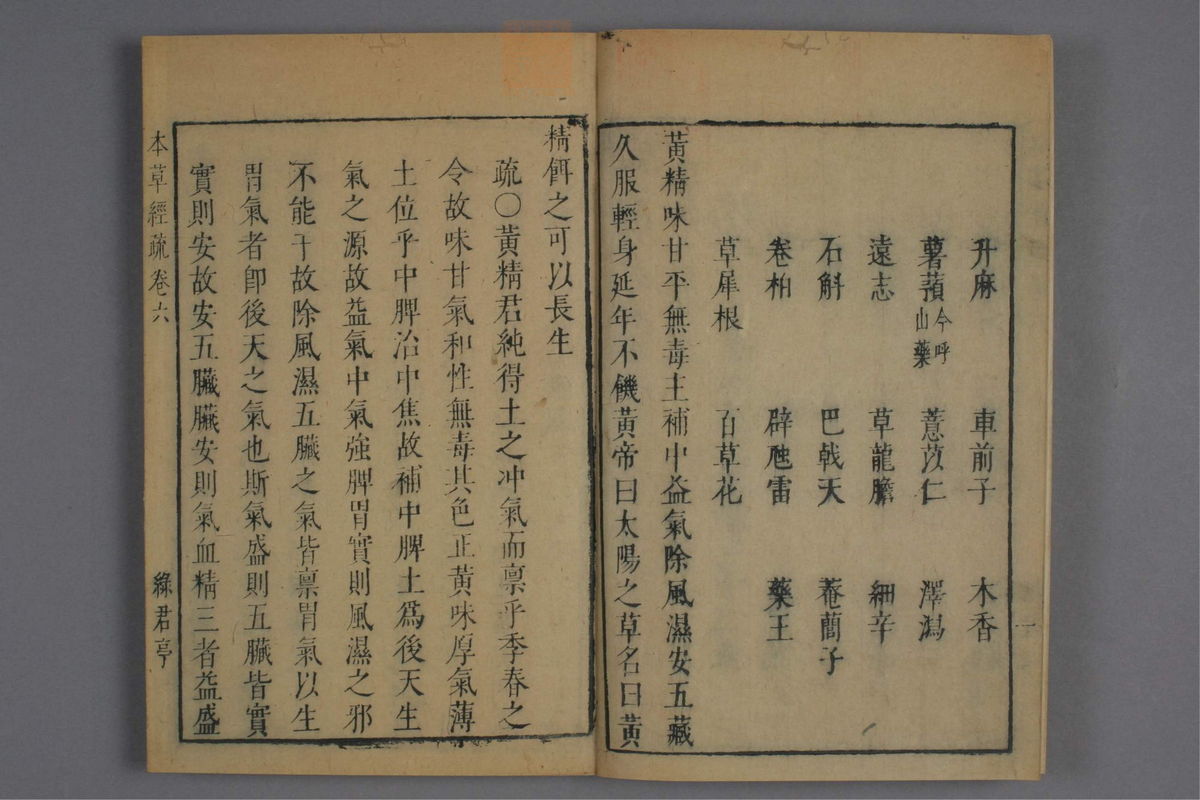 升麻 車前子 木香
薯蕷今呼山藥 薏苡仁 澤瀉
遠志 草龍膽 細辛
石斛 巴戟天 菴䕡子
卷柏 辟虺雷 藥王
草犀根 百草花
黃精味甘平無毒主補中益氣除風濕安五藏
久服輕身延年不饑黃帝曰太陽之草名曰黃
精餌之可以長生
疏〇黃精君純得土之冲氣而禀乎季春之
令故味甘氣和性無毒其色正黃味厚氣薄
土位乎中脾治中焦故補中脾土爲後天生
氣之源故益氣中氣強脾胃實則風濕之邪
不能干故除風濕五臟之氣皆禀胃氣以生
胃氣者卽後天之氣也斯氣盛則五臟皆實
實則安故安五臟臟安則氣血精三者益盛
本草經疏 卷六 綠君亭